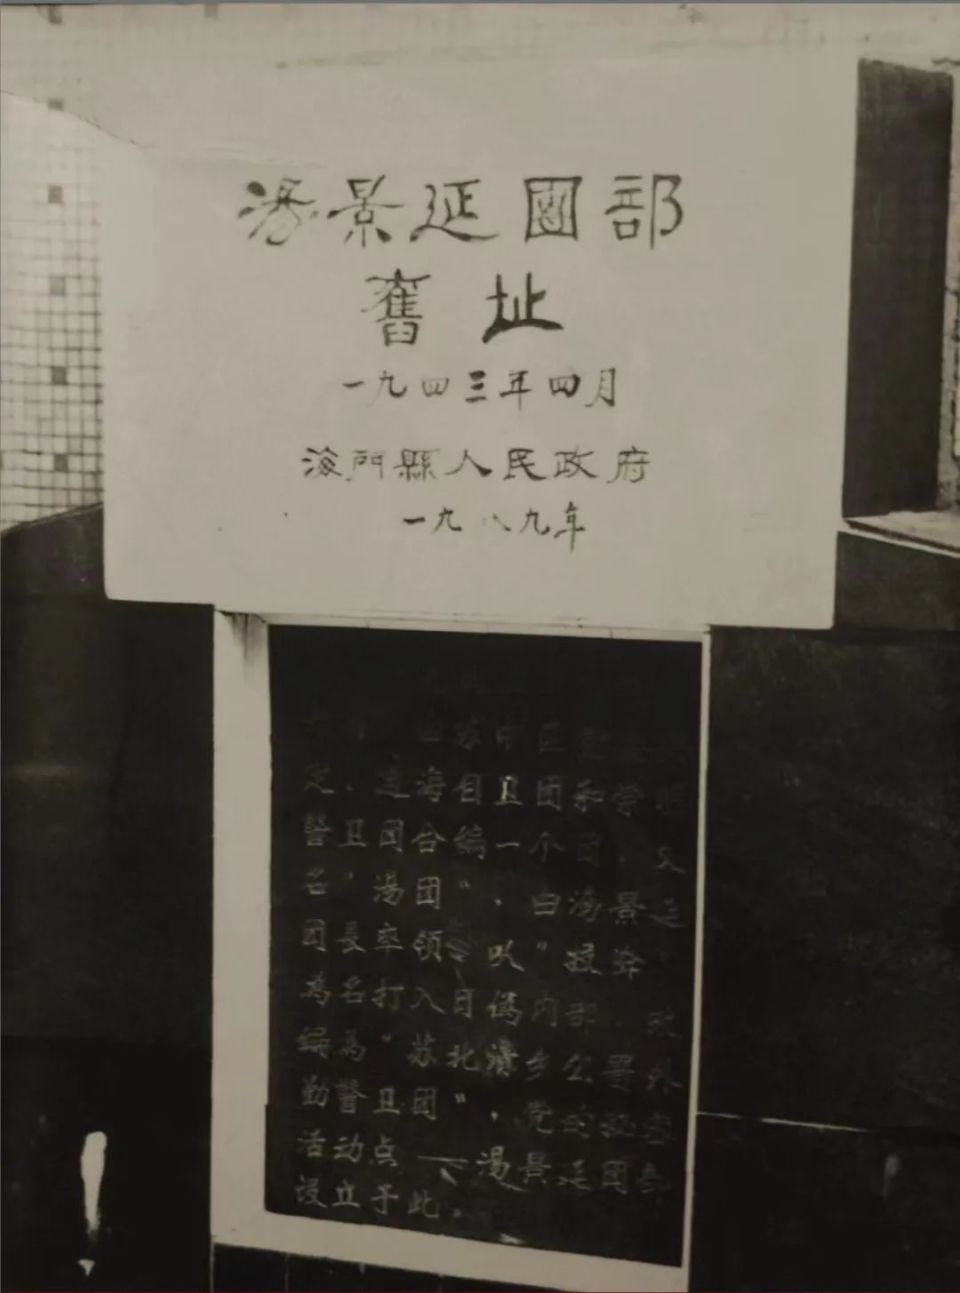 湯景延團部
舊址
一九四三年四月
海門縣人民政府
一九八九年
苏中区党
定 海自卫团和
警卫团合编一个团
名 湯团" 由湯景延
团長率领
为名打入日伪内部，改
编为"苏北清乡公署外
勤警卫团"，党的
活动点一湯景延团部
设立于此。